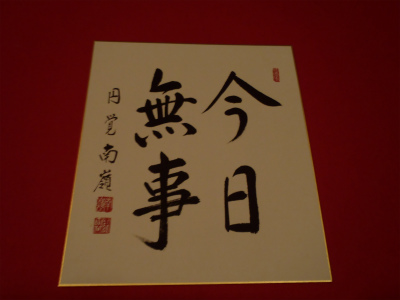 今日
無事
円覚南嶺